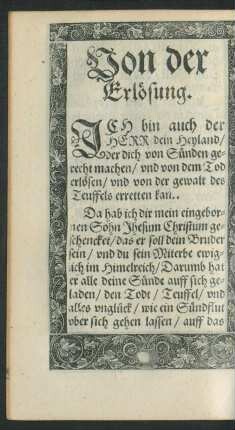 Von der
Erlösung.
ICH bin auch der
HERR dein Heyland/
Der dich von Sünden ge-
recht machen/ vnd von dem Tod
erlösen/ vnd von der gewalt des
Teuffels erretten kan..
Da hab ich dir mein eingebor-
nen Sohn Jhesum Christum ge-
schencket/ das er soll dein Bruder
sein/ vnd du sein Miterbe ewig-
lich im Himelreich/ Darumb hat
er alle deine Sünde auff sich ge-
laden/ den Todt/ Teuffel/ vnd
alles vnglück/ wie ein Sündflut
vber sich gehen lassen/ auff das